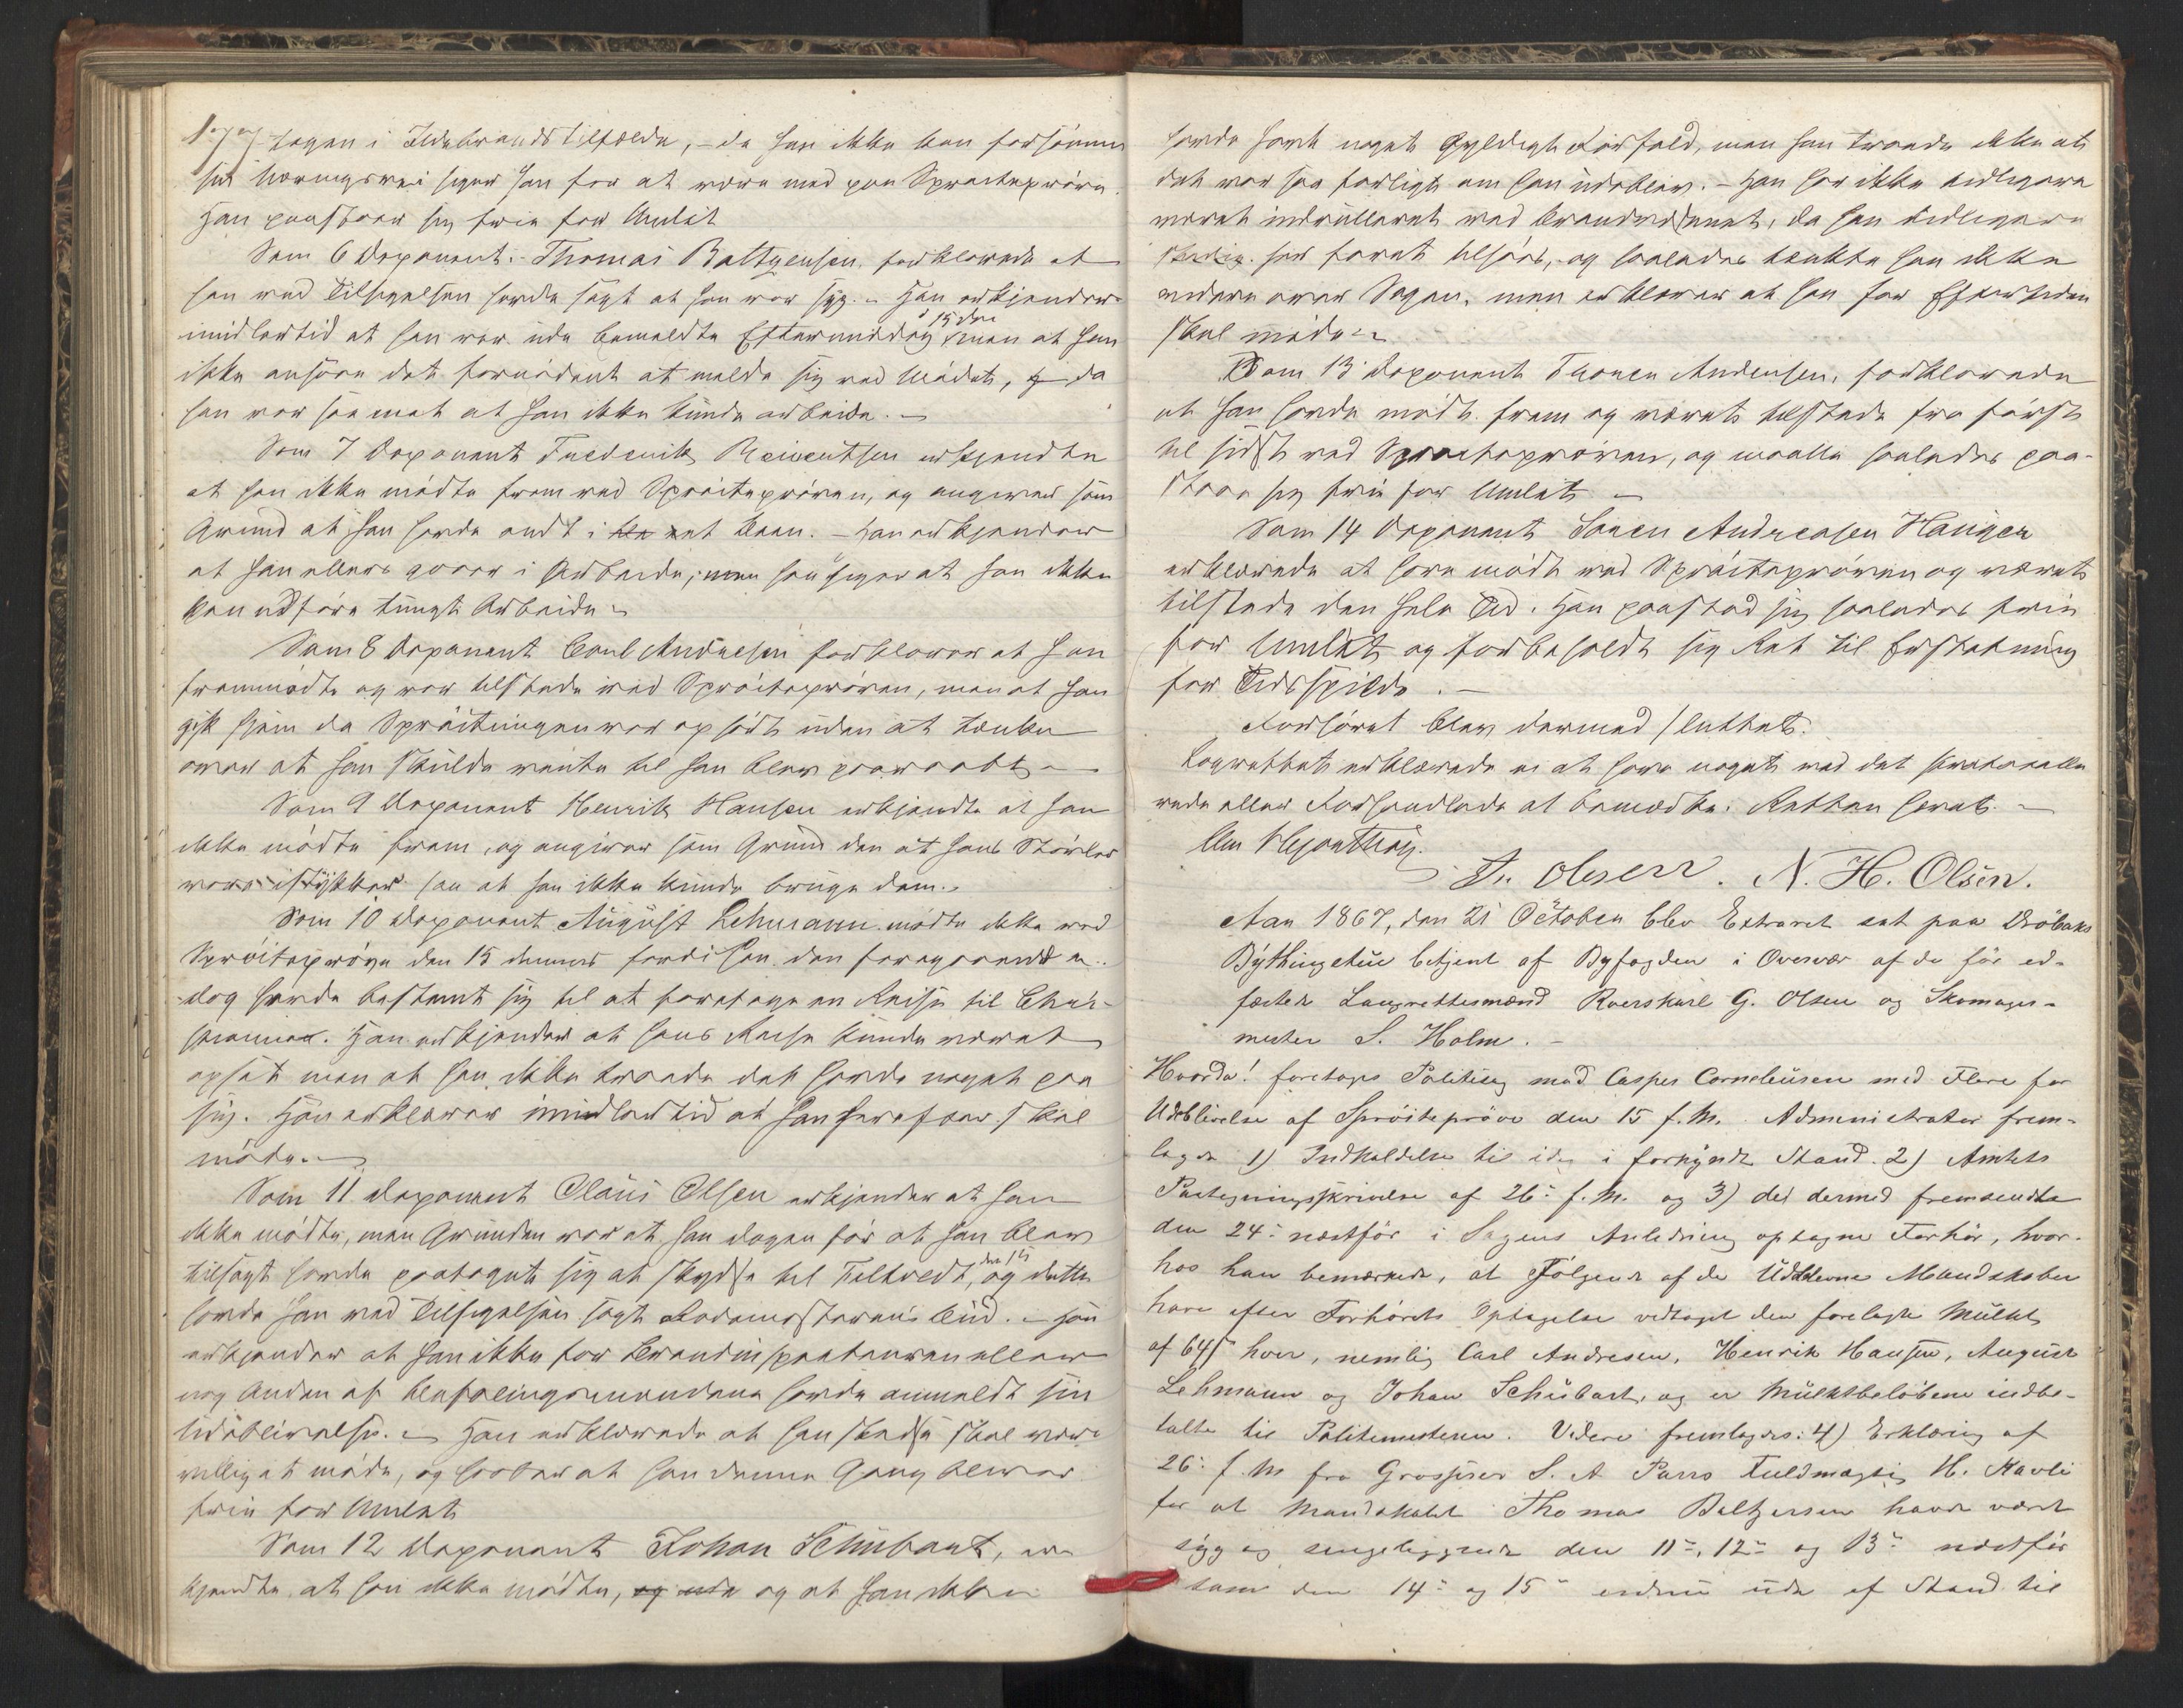 177 tagen i Ildebrandstilfælde, – da han ikke kan forsömme
sin Næringsvei siger han for at være med paa Spröiteprøve.
Han paastaar sig frie for Mulct
Som 6 Deponent: Thomas Baltzersen forklarede at
han ved Tilsigelsen havde sagt at han var syg. – Han erkjender
imidlertid at han var ude bemeldte Eftermiddag d 15den men at han
ikke ansaae det fornödent at melde sig ved Mödet, da
han var saa mat at han ikke kunde arbeide. –
Som 7 Deponent Frederik Reinertsen erkjendte
at han ikke mödte frem ved Spröiteprøven, og angiver som
Grund at han havde ondt i det ene Been. – Han erkjender
at han ellers gaaer i Arbeide, men han siger at han ikke
kan udföre tungt Arbeide –
Som 8 Deponent Carl Andresen forklarer at han
fremmödte og var tilstede ved Spröiteprøven, men at han
gik hjem da Spröitningen var ophört uden at tænke
over at han skulde vente til han blev paaraabt –
Som 9 Deponent Henrik Hansen erkjendte at han
ikke mödte frem, og angiver som Grund den at hans Støvler
vare istykker saa at han ikke kunde bruge dem. –
Som 10 Deponent August Lehmann mödte ikke ved
Spröiteprøve den 15 dennes fordi han den foregaaende
dog havde bestemt sig til at foretage en Reise til Chri-
stiania. Han erkjender at hans Reise kunde været
opsat men at han ikke troede det havde noget paa
sig. Han erklærer imidlertid at han herefter skal
möde. –
Som 11 Deponent Olaus Olsen erkjender at han
ikke mödte, men Grunden var at han dagen för at han blev
tilsagt havde paataget sig at skydse til Follvedt, den 15 og dette
havde han ved Tilsigelsen sagt Rodemesterens Bud. – Han
erkjender at han ikke for Brandinspecteuren eller
nog Anden af Befalingsmændene havde anmeldt sin
Udeblivelse. – Han erklærede at han stedse skal være
villig at möde, og haaber at han denne Gang bliver
frie for Mulct
Som 12 Deponent Johan Schubart, er-
kjendte at han ikke mödte, og at han ikke
havde havt noget Gyldigt Forfald, men han troede ikke at
det var saa farligt om han udeblev. – Han har ikke tidligere
været indrulleret ved Brandvæsenet, da han tidligere
stedse har faret tilsøes, og saaledes tænkte han ikke
videre over Sagen, men erklærer at han for Eftertiden
skal möde –
Som 13 Deponent Thomas Andersen, forklarede
at han havde mödt frem og været tilstede fra först
til sidst ved Spröiteprøven, og maatte saaledes paa-
staae sig frie for Mulct –
Som 14 Deponent Søren Andreasen Haugen
erklærede at have mödt ved Spröiteprøven og været
tilstede den hele Tid. Han paastod sig saaledes frie
for Mulct og forbeholdt sig Ret til Erstatning
for Tidsspilde. –
Forhöret blev dermed sluttet.
Lagrettet erklærede ei at have noget ved det foretalte
vede eller Forhandlede at bemærke. Retten hævet. –
A. Olsen. N. H. Olsen.
Aar 1867, den 21 October blev Extraret sat paa Dröbaks
Bythingstue betjent af Byfogden i Overvær af de för ed-
fæstede Laugrettesmænd Roerskarl G. Olsen og Skomager-
mester S. Holm. –
Hvorda! foretages Politisag mod Casper Corneliusen med Flere for
Udeblivelse af Spröiteprøve den 15 f. M. Administrator frem-
lagde 1) Indkaldelse til idag i forkyndt Stand. 2) Amtets
Paategningsskrivelse af 26de f. M. og 3) det dermed fremsendte
den 24de næstför i Sagens Anledning optagne Forhör, hvor-
hos han bemærkede, at Fölgende af de Udeblevne Mandskaber
have efter Forhörets Optagelse vedtaget den forelagte Mulkt
af 64 s hver, nemlig Carl Andresen, Henrik Hansen, August
Lehmann og Johan Schübart, og er Mulktbelöbene indbe-
talte til Politimesteren. Videre fremlagdes: 4) Erklæring af
26de f. M. fra Grosserer S. A. Parrs Fuldmægtig H. Kavli
for at Mandskabet Thomas Baltzersen havde været
syg og sengeliggende den 11te, 12te og 13de næstför
samt den 14de og 15de endnu ude af Stand til